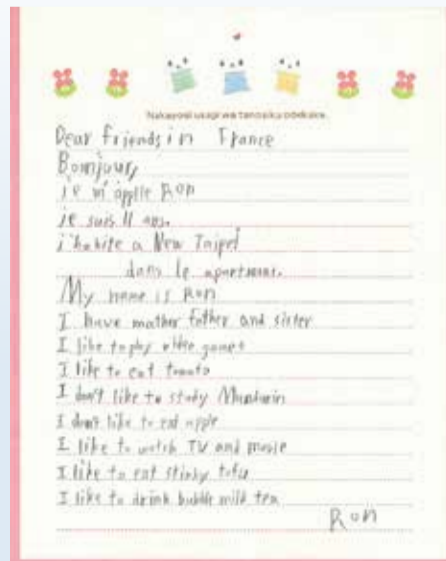 Nakayosi usagi wa tanosiku odekake
Dear friends in France
Bomjour,
je m'apple Ron
je suis 11 ans.
j'habite a New Taipei
dans le apartment.
My name is Ron
I have mather father and sister
I like to play video games
I like to eat tomato
I don't like to study Mandarin
I don't like to eat apple
I like to watch TV and movie
I like to eat stinky tofu
I like to drink bubble milk tea
Ron